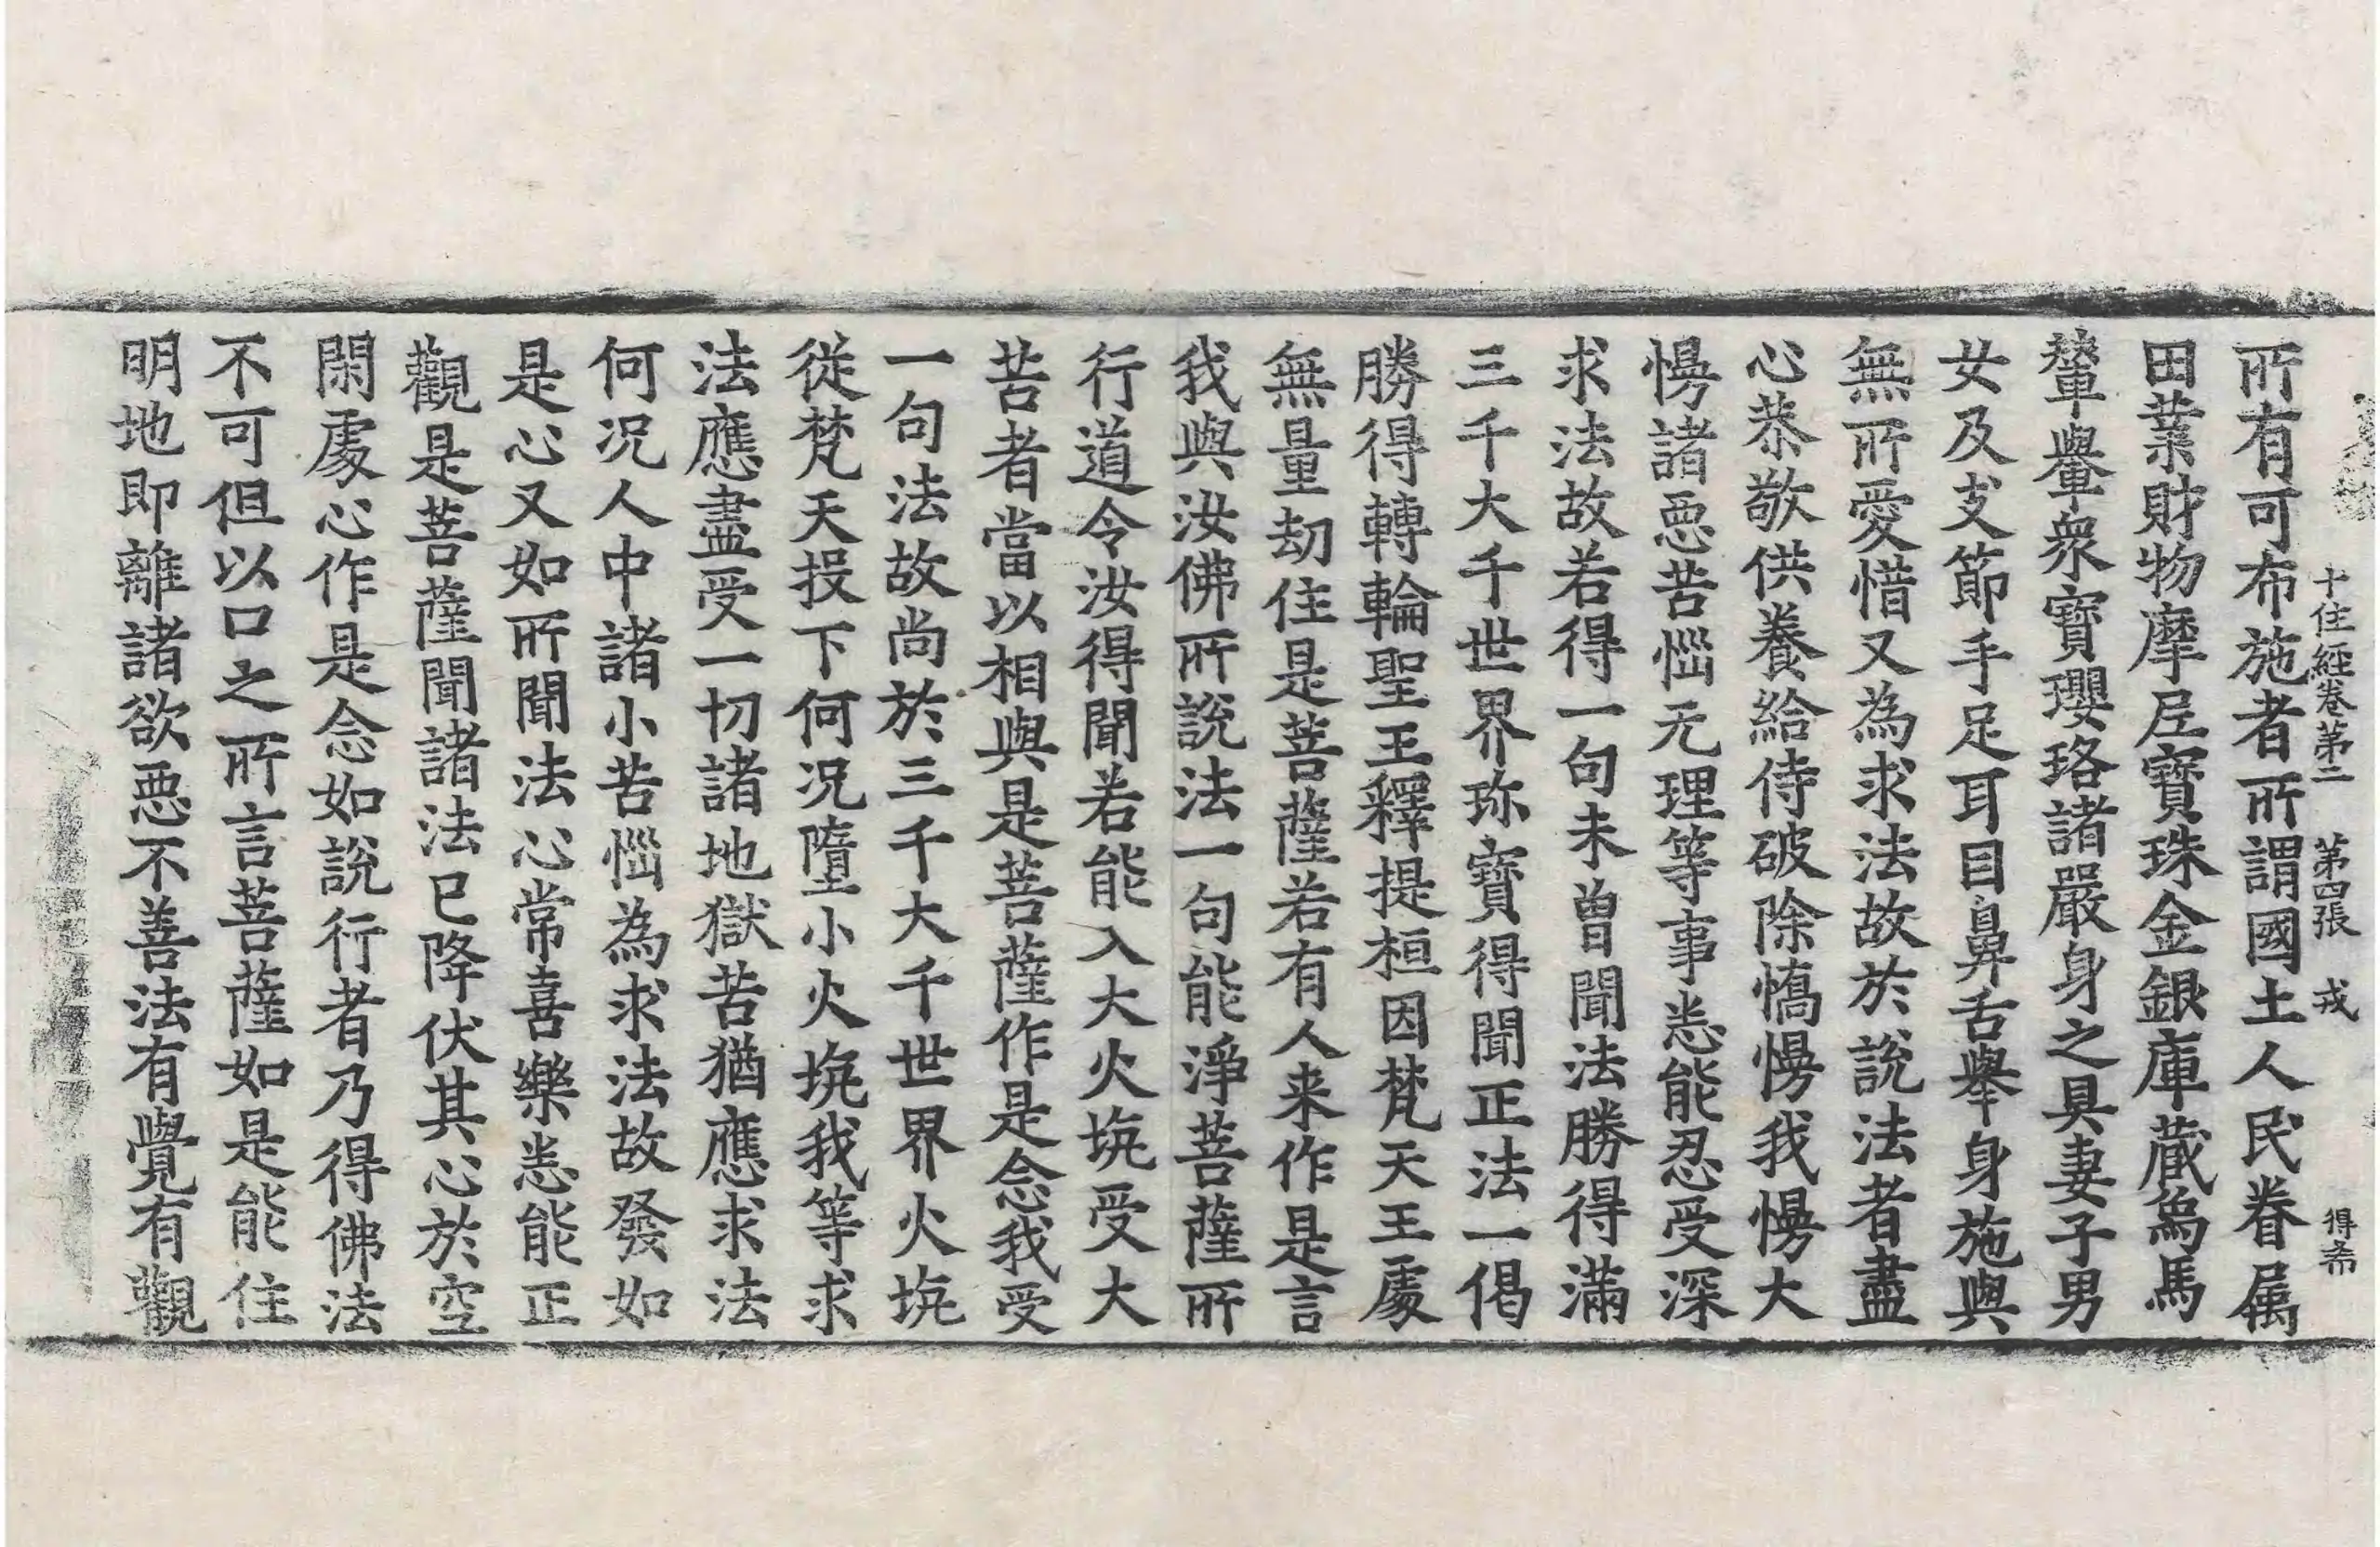 十住經卷第二　第四張　戎　得斋
所有可布施者所謂國土人民眷属
田業財物摩𡰱寶珠金銀庫藏象馬
輦轝衆寶瓔珞諸嚴身之具妻子男
女及支節手足耳目鼻舌舉身施與
無所愛惜又為求法故於說法者盡
心恭敬供養給侍破除憍慢我慢大
慢諸惡苦惱无理等事悉能忍受深
求法故若得一句未曾聞法勝得滿
三千大千世界珎寶得聞正法一偈
勝得轉輪聖王釋提桓因梵天王處
無量劫住是菩薩若有人来作是言
我與汝佛所說法一句能淨菩薩所
行道令汝得聞若能入大火坑受大
苦者當以相與是菩薩作是念我受
一句法故尚於三千大千世界火坑
從梵天投下何況墮小火坑我等求
法應盡受一切諸地獄苦猶應求法
何況人中諸小苦惱為求法故發如
是心又如所聞法心常喜樂悉能正
觀是菩薩聞諸法已降伏其心於空
閑處心作是念如說行者乃得佛法
不可但以口之所言菩薩如是能住
明地即離諸欲惡不善法有覺有觀